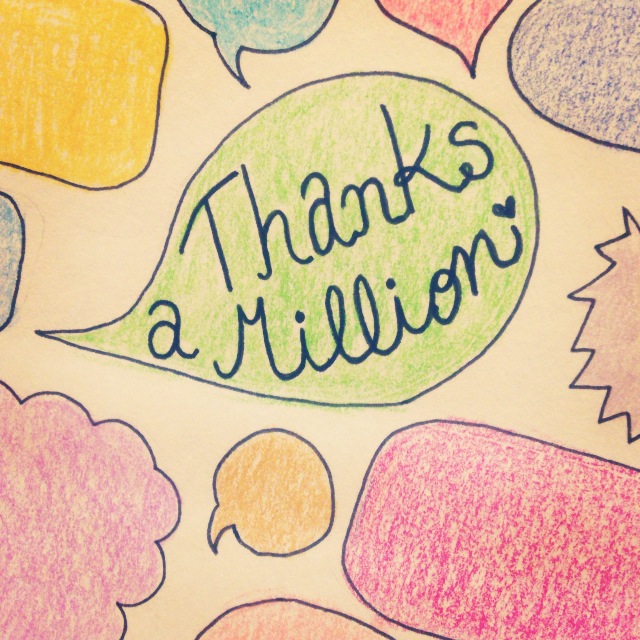 Thanks
a Million